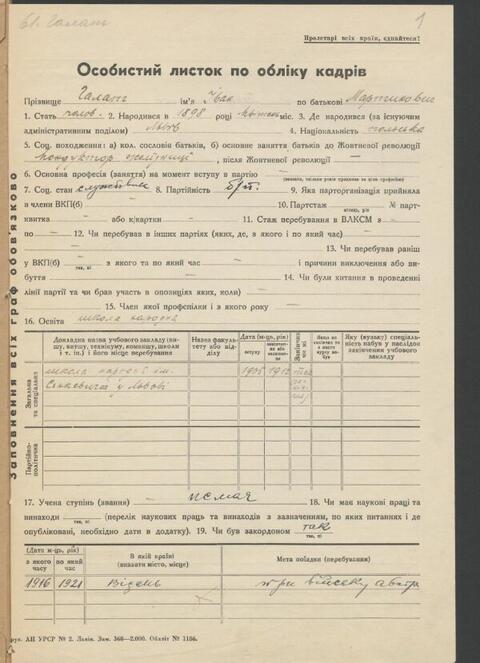 Єв. Галань
1
Пролетарі всіх країн, єднайтеся!
Особистий листок по обліку кадрів
Прізвище Галант ім'я Іван по батькові Мартинович
1. Стать чолов. 2. Народився в 1898 році місяці. 3. Де народився (за існуючим
адміністративним поділом) Львів 4. Національність полька
5. Соц. походження: а) кол. сословіє батьків, б) основне заняття батьків до Жовтневої революції
кондуктор залізниці, після Жовтневої революції —
6. Основна професія (заняття) на момент вступу в партію —
(вказати, скільки років працював за цією професією)
7. Соц. стан службовик 8. Партійність б/п. 9. Яка парторганізація прийняла
в члени ВКП(б) — 10. Партстаж — № парт-
місяць, рік
квитка — або к/картки — 11. Стаж перебування в ВЛКСМ з —
по — 12. Чи перебував в інших партіях (яких, де, з якого і по який час) —
13. Чи перебував раніш
у ВКП(б) — з якого та по який час — і причини виключення або ви-
так, ні
буття — 14. Чи були хитання в проведенні
лінії партії та чи брав участь в опозиціях яких, коли) —
15. Член якої профспілки і з якого року —
16. Освіта школа народна
Заповнення всіх граф обов'язково
Загальна та спеціальна
Докладна назва учбового закладу (ви-
шу, технікуму, комвишу, школи
і т. ін.) і його місце перебування
Назва факуль-
тету або від-
ділу
Дата (м-ць, рік)
вступу
закінчен-
ня або
залишення
Закінчив чи ні
Якщо не
закінчив то
з якого
курсу вибув
Яку (вузьку) спеціаль-
ність набув в наслідок
закінчення учбового
закладу
школа народна ім.
Сінкевича у Львові
1905 1912
Партійно-
політична
17. Учена ступінь (звання) немає 18. Чи має наукові праці та
винаходи — (перелік наукових праць та винаходів з зазначенням, по яких питаннях і де
так, ні
опубліковані, необхідно дати в додатку). 19. Чи був закордоном так
так, ні
(Дата м-ць, рік)
з якого
часу
по який
час
В якій країні
(вказати місто, місце)
Мета поїздки (перебування)
1916 1921 Відень при війську австр.
рук. АН УРСР № 2. Львів. Зам. 360—2.000. Обліт № 1186.